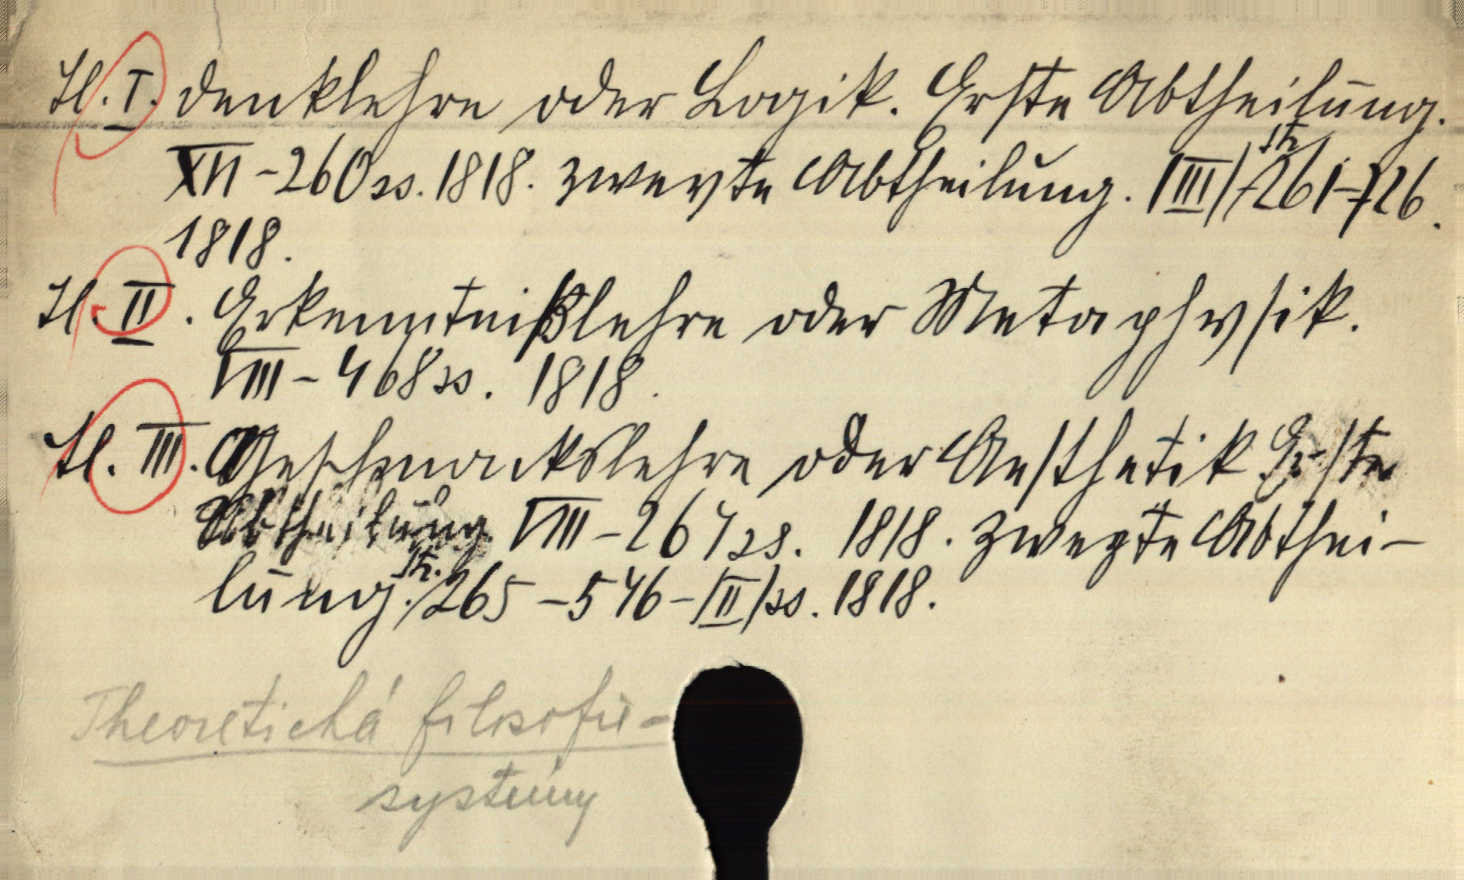 Tl. I. Denklehre oder Logik. Erste Abtheilung.
XII - 260 ss. 1818. Zweyte Abtheilung. |III|
261-726.
1818.
Tl. II. Erkenntnißlehre oder Metaphysik.
VIII - 468 ss. 1818.
Tl. III. Geschmackslehre oder Aesthetik Erste
Abtheilung. VIII - 264 ss. 1818. Zweyte Abthei-
lung. 265 - 546 - |II| ss. 1818.
Theoretická filosofie -
systémy